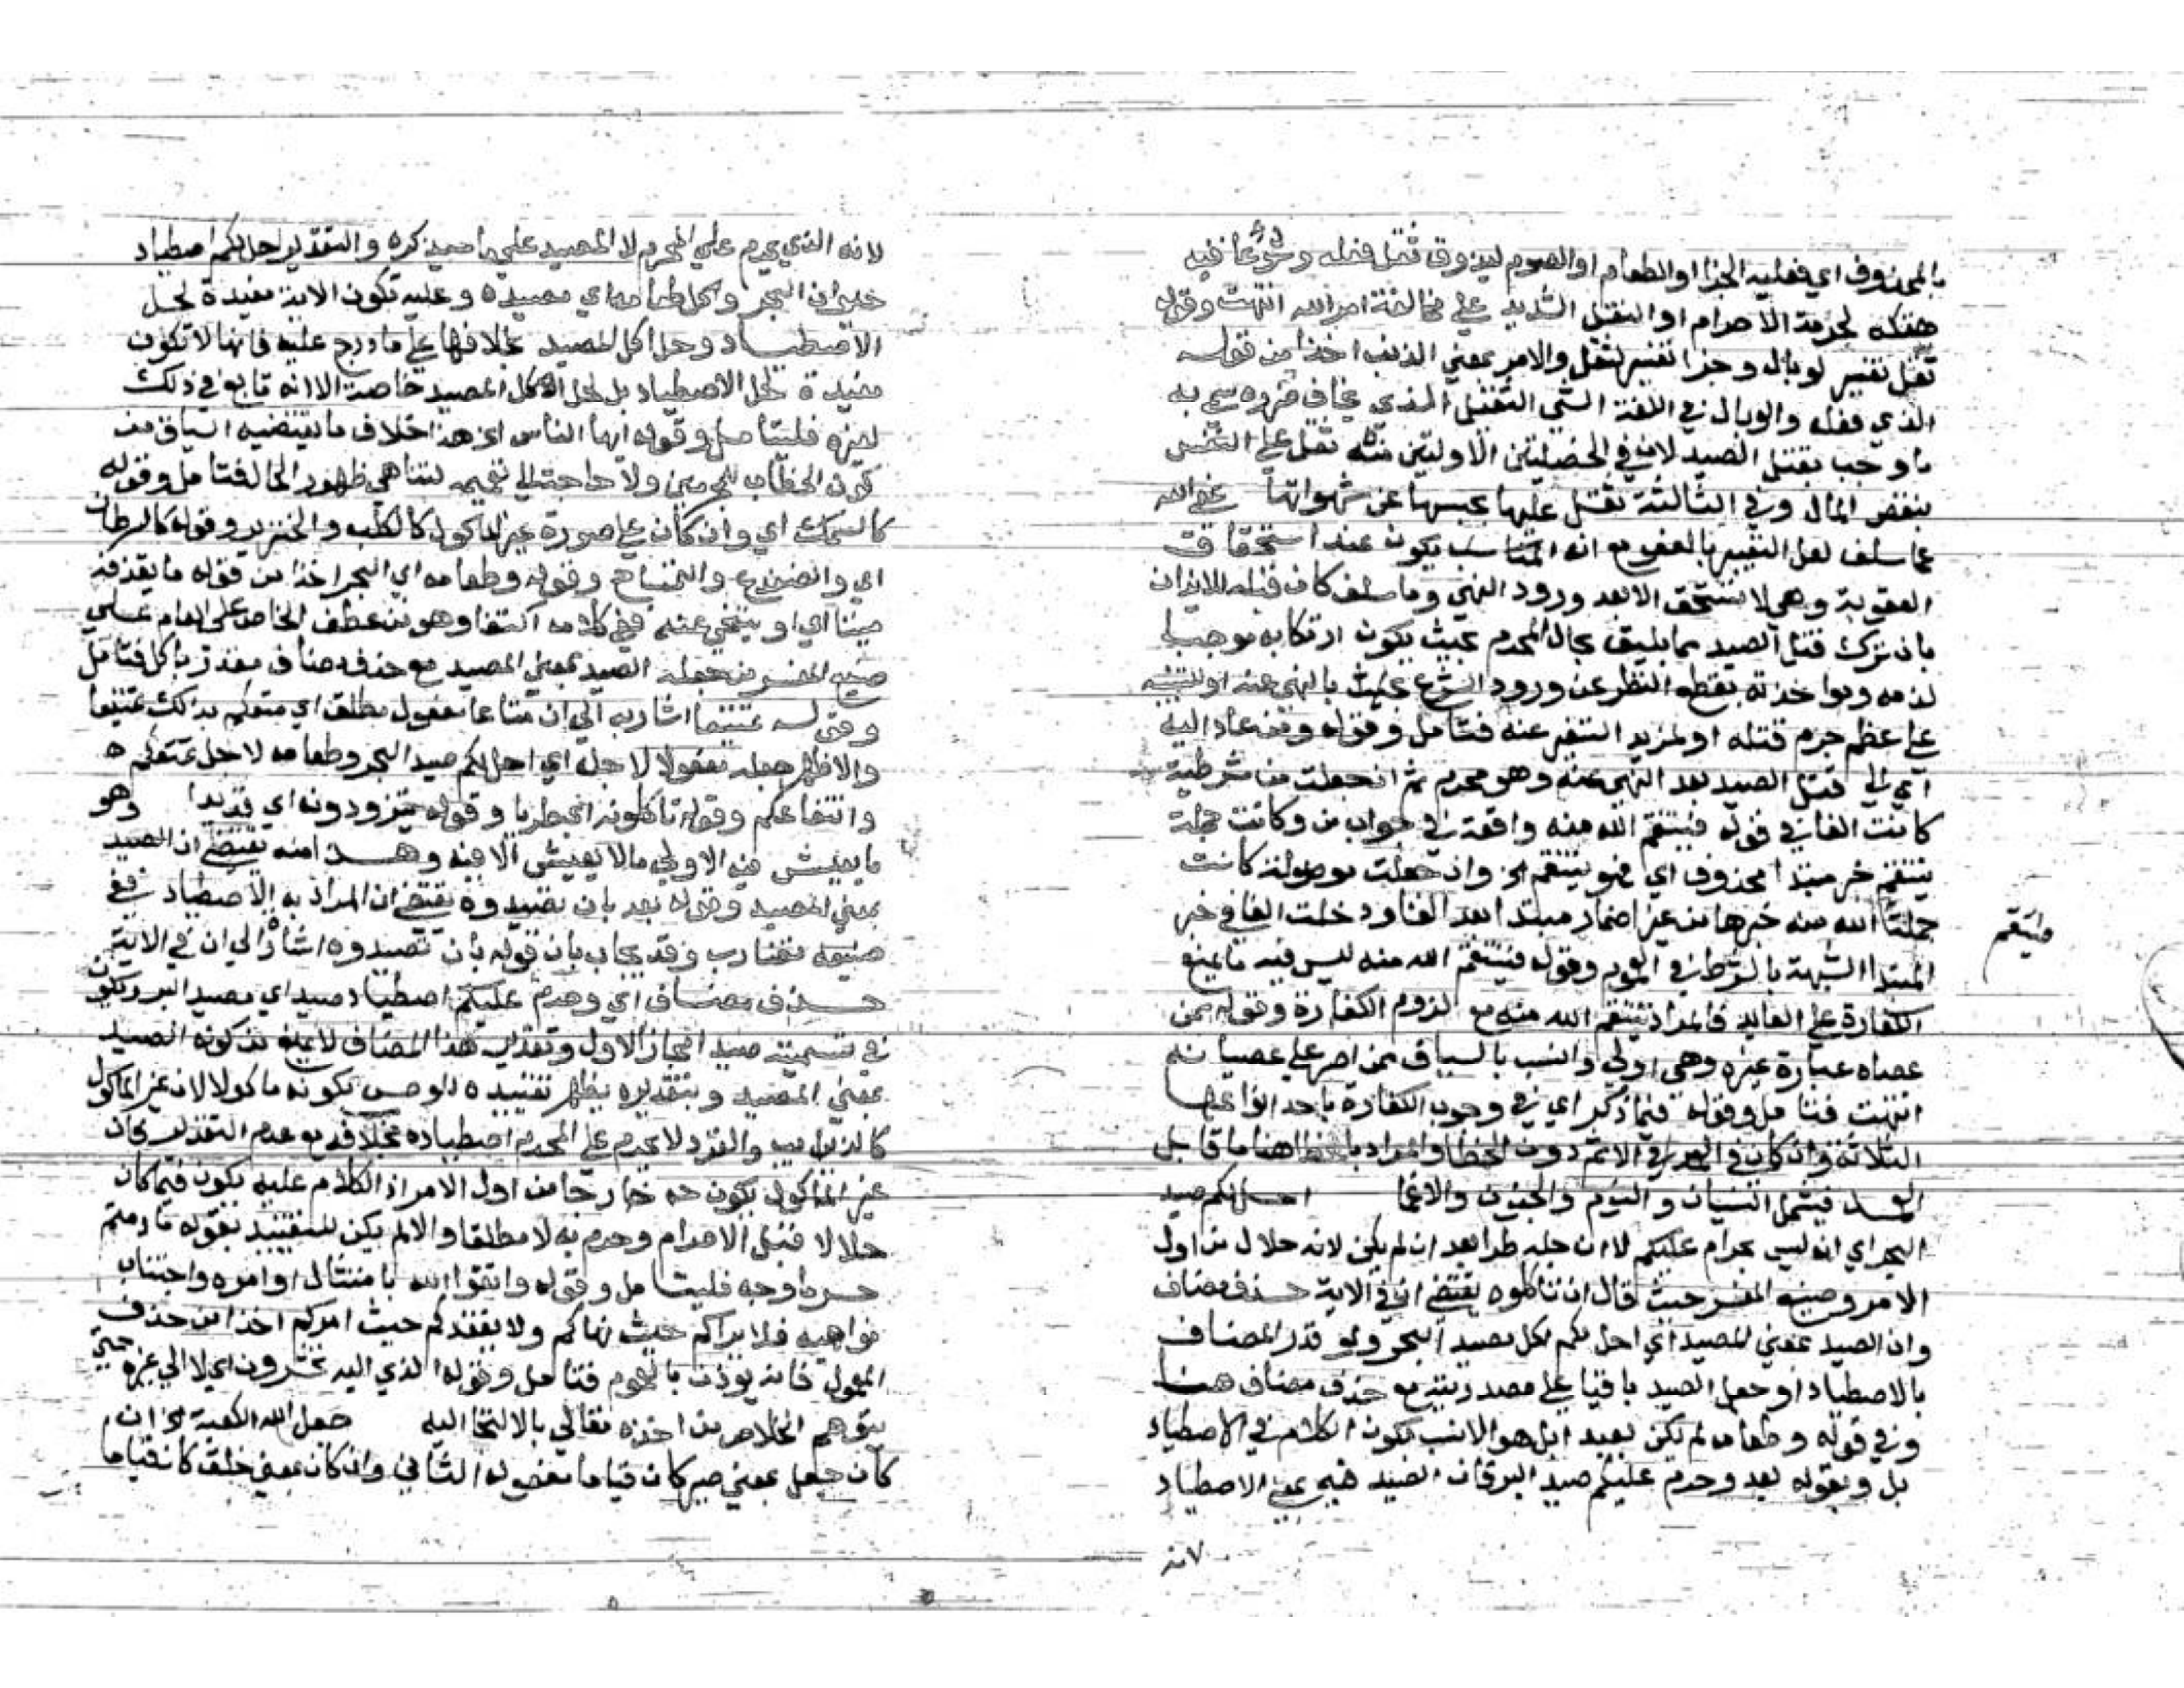 بالمحذوف اي فعليه الجزا او الطعام او الصوم ليذوق ثقل فعله وسوء عاقبة
هتكه لحرمة الاحرام او الثقل الشديد على مخالفة امر الله انتهت وقوله
ثقل تفسير لوبال وجزا تفسير لثقل والامر بمعني الذنب اخذا من قوله
الذي فعله والوبال في اللغة الشي الثقيل الذي يخاف ضرره سمي به
ما وجب بقتل الصيد لان في الخصلتين الاولتين منه ثقل على النفس
بنقص المال وفي الثالثة ثقل عليها بحبسها عن شهواتها عفي الله
عما سلف لعل التعبير بالعفو مع انه المناسب يكون عند استحقاق
العقوبة وهي لا تستحق الا بعد ورود النهي وما سلف كان قبله للايذان
بان ترك قتل الصيد مما يليق بحال المحرم بحيث يكون ارتكابه موجبا
لذمه ومواخذته بقطع النظر عن ورود الشرع بالنهي عنه او للتنبيه
على عظم جرم قتله او لمزيد التنفير عنه فتامل وقوله ومن عاد اليه
اي الي قتل الصيد بعد النهي عنه وهو محرم ثم ان جعلت من شرطية
كانت الفا في قوله فينتقم الله منه واقعة في جواب من وكانت جملة
ينتقم خبر مبتدا محذوف اي فهو ينتقم الخ وان جعلت موصولة كانت
جملة الله منه خبرها من غير اضمار مبتدا بعد الفا ودخلت الفا في خبر
فينتقم
المبتدا الشبهه بالشرط في العموم وقوله فينتقم الله منه ليس فيه ما يمنع
الكفارة على العايد فالمراد ينتقم الله منه مع لزوم الكفارة وقوله ممن
عصاه عبارة غيره وهي اولي وانسب بالسياق ممن اصر على عصيانه
انتهت فتامل وقوله فيما ذكر اي في وجوب الكفارة باحد انواعها
الثلاثة وان كان في العمد الاثم دون الخطا والمراد بالخطا هنا ما قابل
العمد فيشمل النسيان والنوم والجنون والاغما احل لكم صيد
البحر اي انه ليس بحرام عليكم لا ان حله طرا بعد ان لم يكن لانه حلال من اول
الامر وصنيع المفسر حيث قال ان تاكلوه يقتضي ان في الاية حذف مضاف
وان الصيد بمعني المصيد اي احل لكم اكل مصيد البحر ولو قدر المضاف
بالاصطياد او جعل الصيد باقيا على مصدريته مع حذف مضاف هنا
وفي قوله وطعامه لم يكن بعيدا بل هو الانسب بكون الكلام في الاصطياد
بل وبقوله بعد وحرم عليكم صيد البر فان الصيد فيه بمعني الاصطياد
لانه
لانه الذي يحرم على المحرم لا المصيد على ما سيذكره والتقدير احل لكم اصطياد
حيوان البحر واكل طعامه اي مصيده وعليه تكون الاية مفيدة لحل
الاصطياد وحل اكل المصيد بخلافها على ما درج عليه فانها لا تكون
مفيدة لحل الاصطياد بل لحل اكل المصيد خاصة الا انه تابع في ذلك
لغيره فليتامل وقوله ايها الناس الخ هذا خلاف ما يقتضيه السياق من
كون الخطاب للمحرمين ولا حاجة الي تعميمه لتناهي ظهور الحال فتامل وقوله
كالسمك اي وان كان على صورة غير الماكول كالكلب والخنزير وقوله كالسرطان
اي والضفدع والتمساح وقوله وطعامه اي البحر اخذا من قوله ما يقذفه
ميتا اي او ينحي عنه ففي كلامه اكتفا وهو من عطف الخاص على العام على
صنيع المفسر من جعله الصيد بمعني المصيد مع حذف مضاف مقدر باكل فتامل
وقوله تمتيعا اشار به الي ان متاعا مفعول مطلق اي متعكم بذلك تمتيعا
والاظهر جعله مفعولا لاجله اي احل لكم صيد البحر وطعامه لاجل تمتعكم
وانتفاعكم وقوله تاكلونه اي طريا وقوله يتزودونه اي قديدا وهو
ما يعيش فيه الاولي ما لا يعيش الا فيه وهذا منه يقتضي ان الصيد
بمعني المصيد وقوله بعد بان تصيدوه يقتضي ان المراد به الاصطياد ففي
صنيعه تضارب وقد يجاب بان قوله بان تصيدوه اشار الي ان في الاية
حذف مضاف اي وحرم عليكم اصطياد صيد اي مصيد البر ويكون
في تسميته صيدا مجاز الاول وتقدير هذا المضاف لا يمنع من كونه الصيد
بمعني المصيد وبتقديره يظهر تقييده للوحش بكونه ماكولا لان غير الماكول
كالذيب والقرد لا يحرم على المحرم اصطياده بخلافه مع عدم التقدير فان
غير الماكول يكون خارجا من اول الامر اذ الكلام عليه يكون فيما كان
حلالا قبل الاحرام وحرم به لا مطلقا والا لم يكن للتقييد بقوله ما دمتم
حرما وجه فليتامل وقوله واتقوا الله بامتثال اوامره واجتناب
نواهيه فلا يراكم حيث نهاكم ولا يفقدكم حيث امركم اخذا من حذف
المعمول فانه يوذن بالعموم فتامل وقوله الذي اليه تحشرون اي لا الي غيره حتي
يتوهم الخلاص من اخذه تعالي بالالتجا اليه جعل الله الكعبة الخ ان
كان جعل بمعني صير كان قياما مفعوله الثاني وان كان بمعني خلق كان قياما